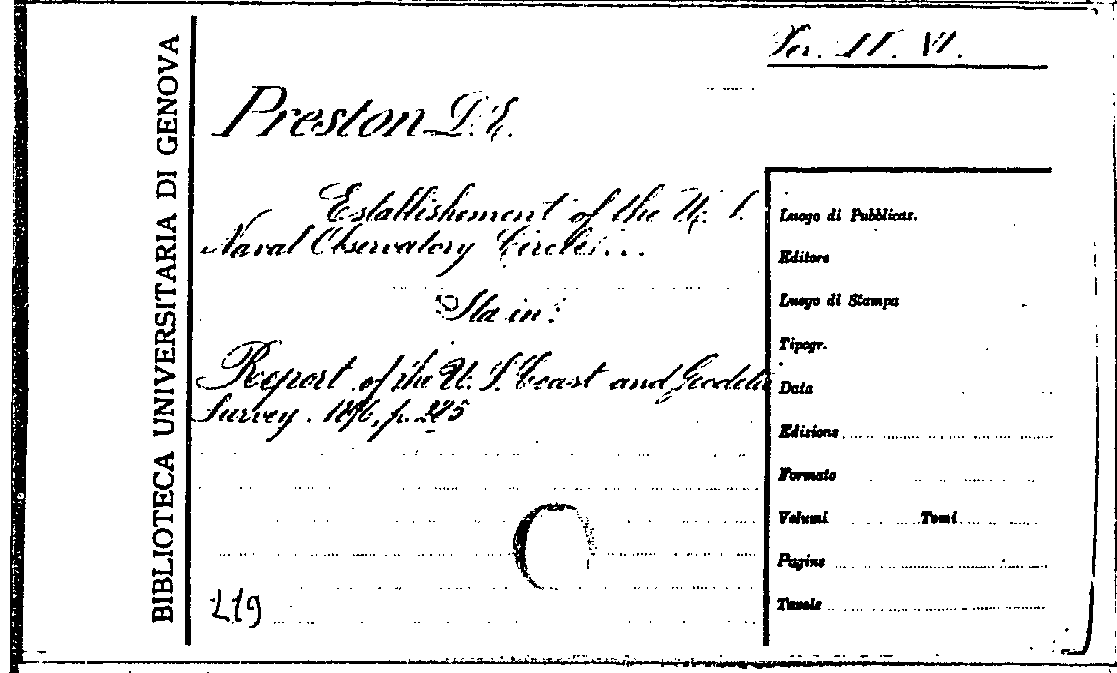 BIBLIOTECA UNIVERSITARIA DI GENOVA
Ser. II. VI.
Preston
Establishement of the U. S.
Naval Observatory Circles...
Sta in:
Report of the U. S. Coast and Geodetic
Survey. 1896, p.
219
Luogo di Pubblicaz.
Editore
Luogo di Stampa
Tipogr.
Data
Edizione
Formato
Volumi Tomi
Pagine
Tavole